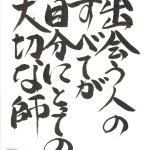 出会う人の
すべてが
自分にとての
大切な師